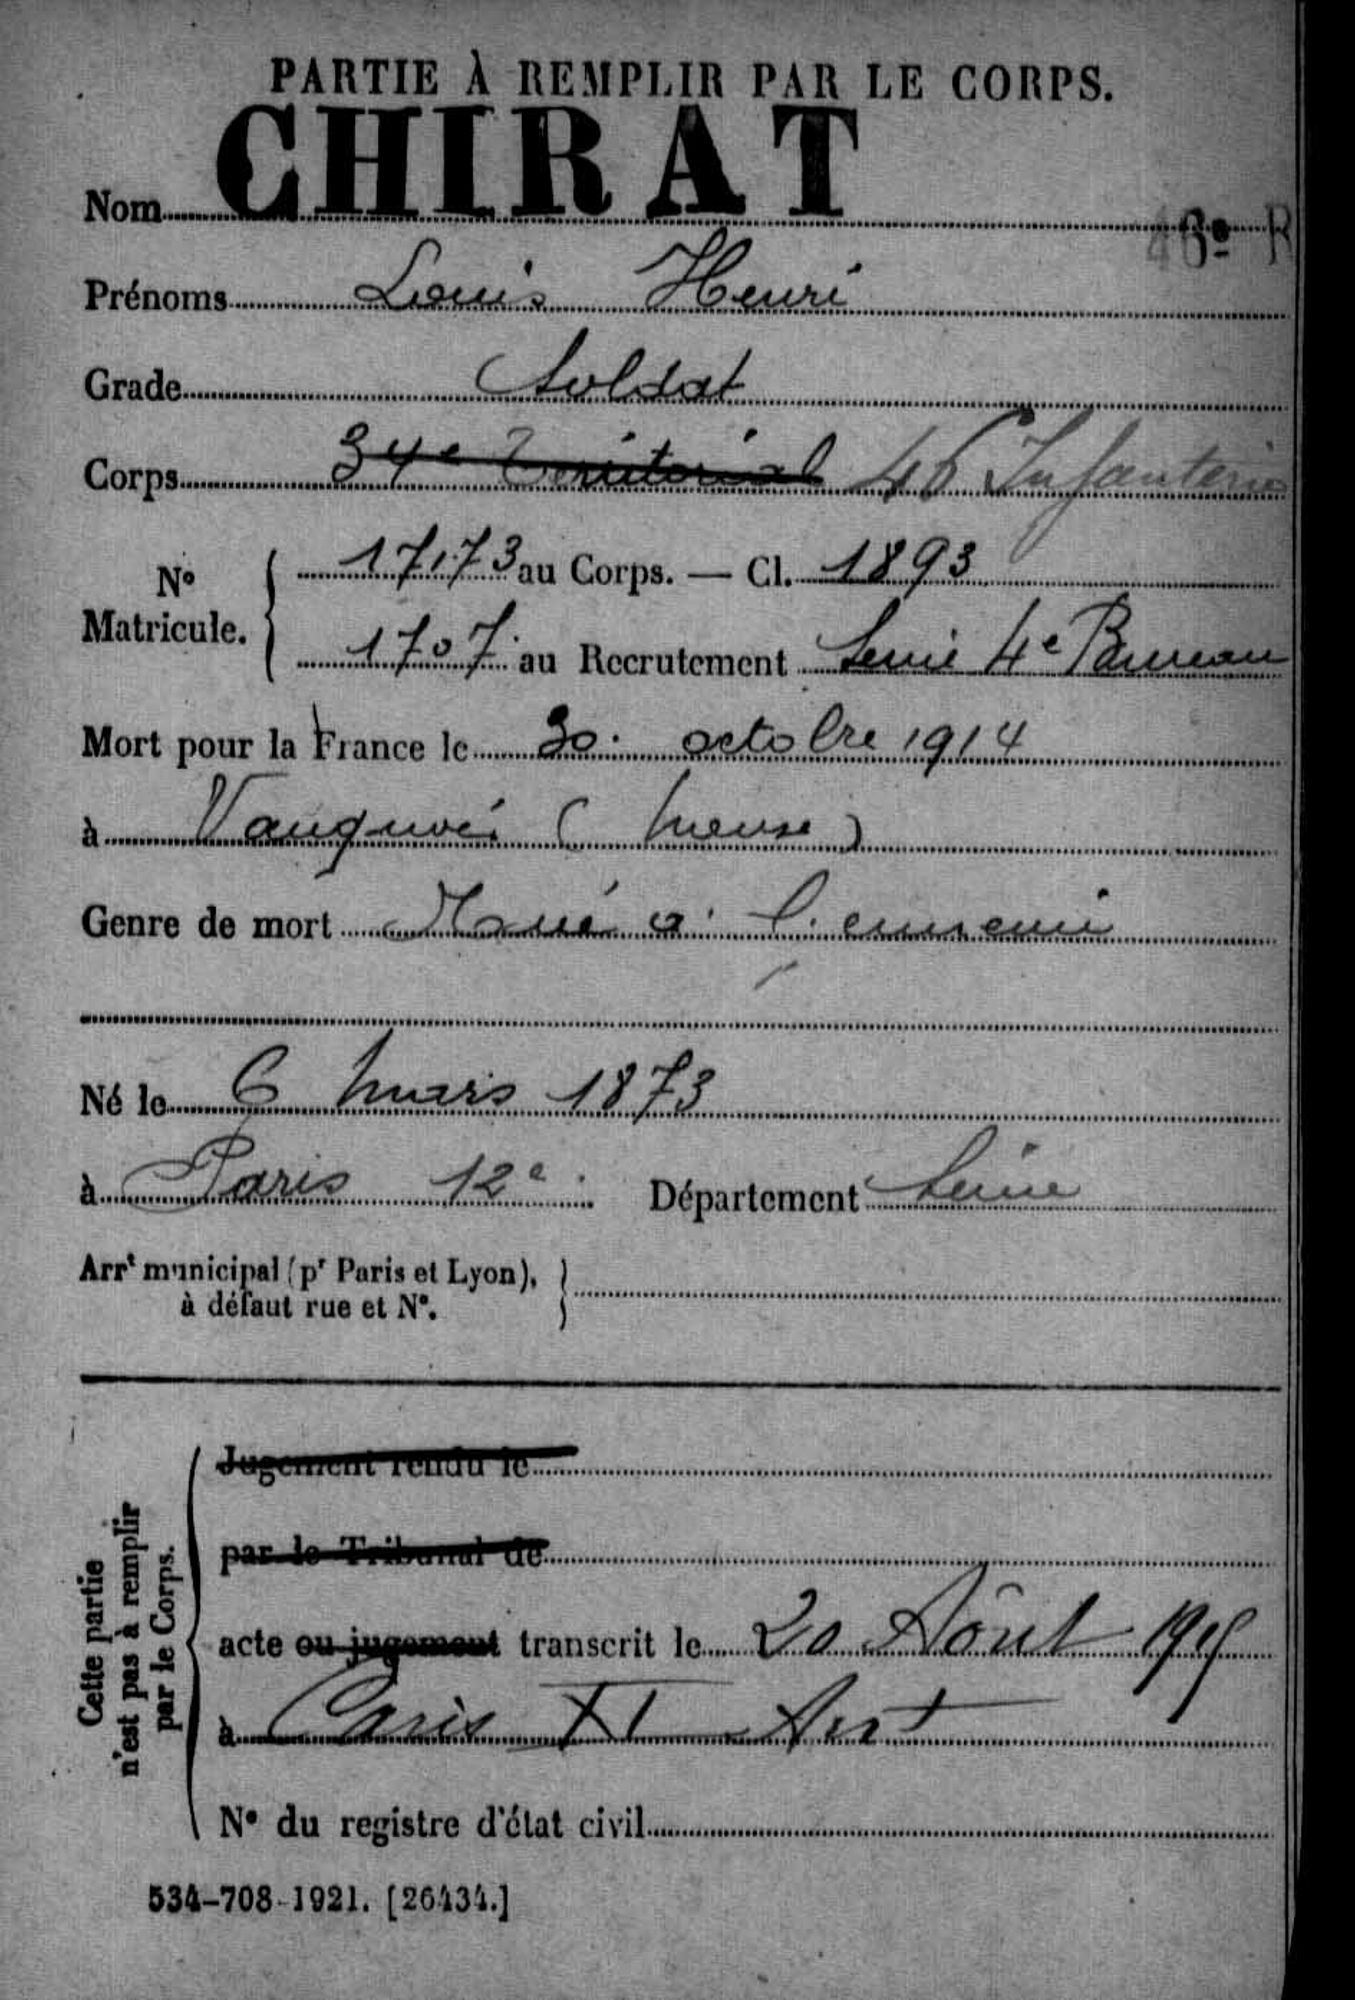 PARTIE À REMPLIR PAR LE CORPS.
Nom CHIRAT
46e R
Prénoms Louis Henri
Grade Soldat
Corps 34e Territorial 46 Infanterie
No Matricule. { 17173 au Corps. — Cl. 1893
1707 au Recrutement Seine 4e Bureau
Mort pour la France le 30 octobre 1914
à Vauquois (Meuse)
Genre de mort Tué à l'ennemi
Né le 6 Mars 1873
à Paris 12e. Département Seine
Arrt municipal (pr Paris et Lyon), à défaut rue et No. }
Cette partie n'est pas à remplir par le Corps.
Jugement rendu le
par le Tribunal de
acte ou jugement transcrit le 20 Août 1915
à Paris XI Arrt
No du registre d'état civil
534-708-1921. [26434.]